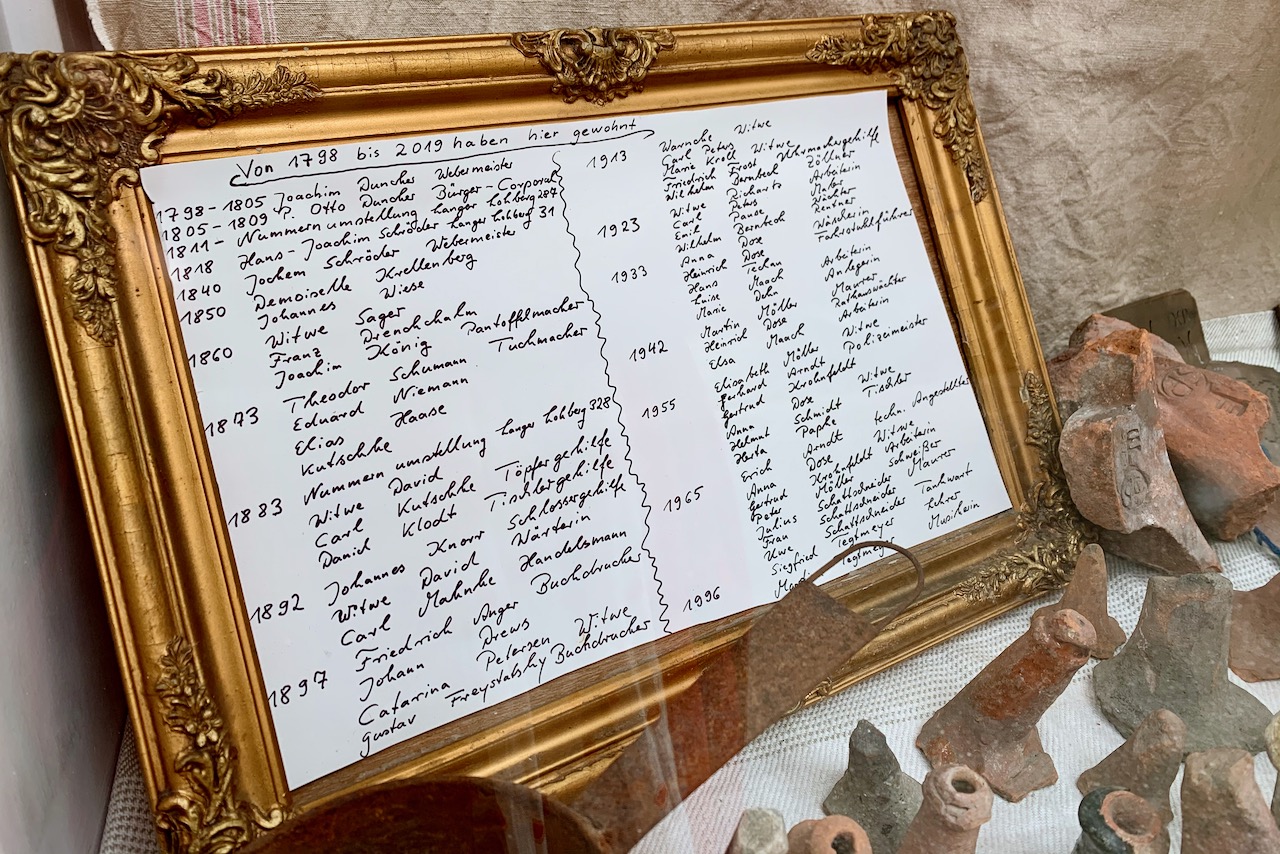 Von 1798 bis 2019 haben hier gewohnt
1798 - 1805 Joachim Duncher Webermeister
1805 - 1809 P. Otto Duncher Bürger - Corporal
1811 - Nummernumstellung Langer Lohberg 287
1818 Hans - Joachim Schröder Langer Lohberg 31
1840 Jochem Schröder Webermeister
Demoiselle Krellenberg
1850 Johannes Wiese
Witwe Sager
1860 Franz Drenckhahn
Joachim König Pantoffelmacher
Theodor Schumann Tuchmacher
1873 Eduard Niemann
Elias Haase
Kutschke
1883 Nummernumstellung Langer Lohberg 328
Witwe David
Carl Kutschke Töpfergehilfe
Daniel Klodt Tischlergehilfe
1892 Johannes Knorr Schlossergehilfe
Witwe David Wärterin
Carl Mahnke Handelsmann
1897 Friedrich Anger Buchdrucker
Johann Drews
Catarina Petersen Witwe
Gustav Freystatsky Buchdrucker
1913 Warncke Witwe
Carl Peters
Marie Kroll Witwe
Friedrich Frost Uhrmachergehilfe
Wilhelm Bernbeck Zöllner
1923 Witwe Richartz Arbeiterin
Carl Peters Maler
Emil Pause Wächter
Wilhelm Bernbeck Rentner
Anna Dose Wäscherin
1933 Heinrich Dose Fahrstuhlführer
Hans Techau
Luise Maack Arbeiterin
Marie Dehn Anlegerin
Martin Möller Maurer
Heinrich Dose Rathauswächter
1942 Elsa Maack Arbeiterin
Elisabeth Möller Witwe
Gerhard Arndt Polizeimeister
Gertrud Krohnfeldt
1955 Anna Dose Witwe
Helmut Schmidt Tischler
Herta Paphe
Erich Arndt techn. Angestellter
Anna Dose Witwe
1965 Gertrud Krohnfeldt Arbeiterin
Peter Möller Schweißer
Julius Schattschneider Maurer
Frau Schattschneider
Uwe Schattschneider Tankwart
Siegfried Tegtmeyer Lehrer
1996 Tegtmeyer Musikerin